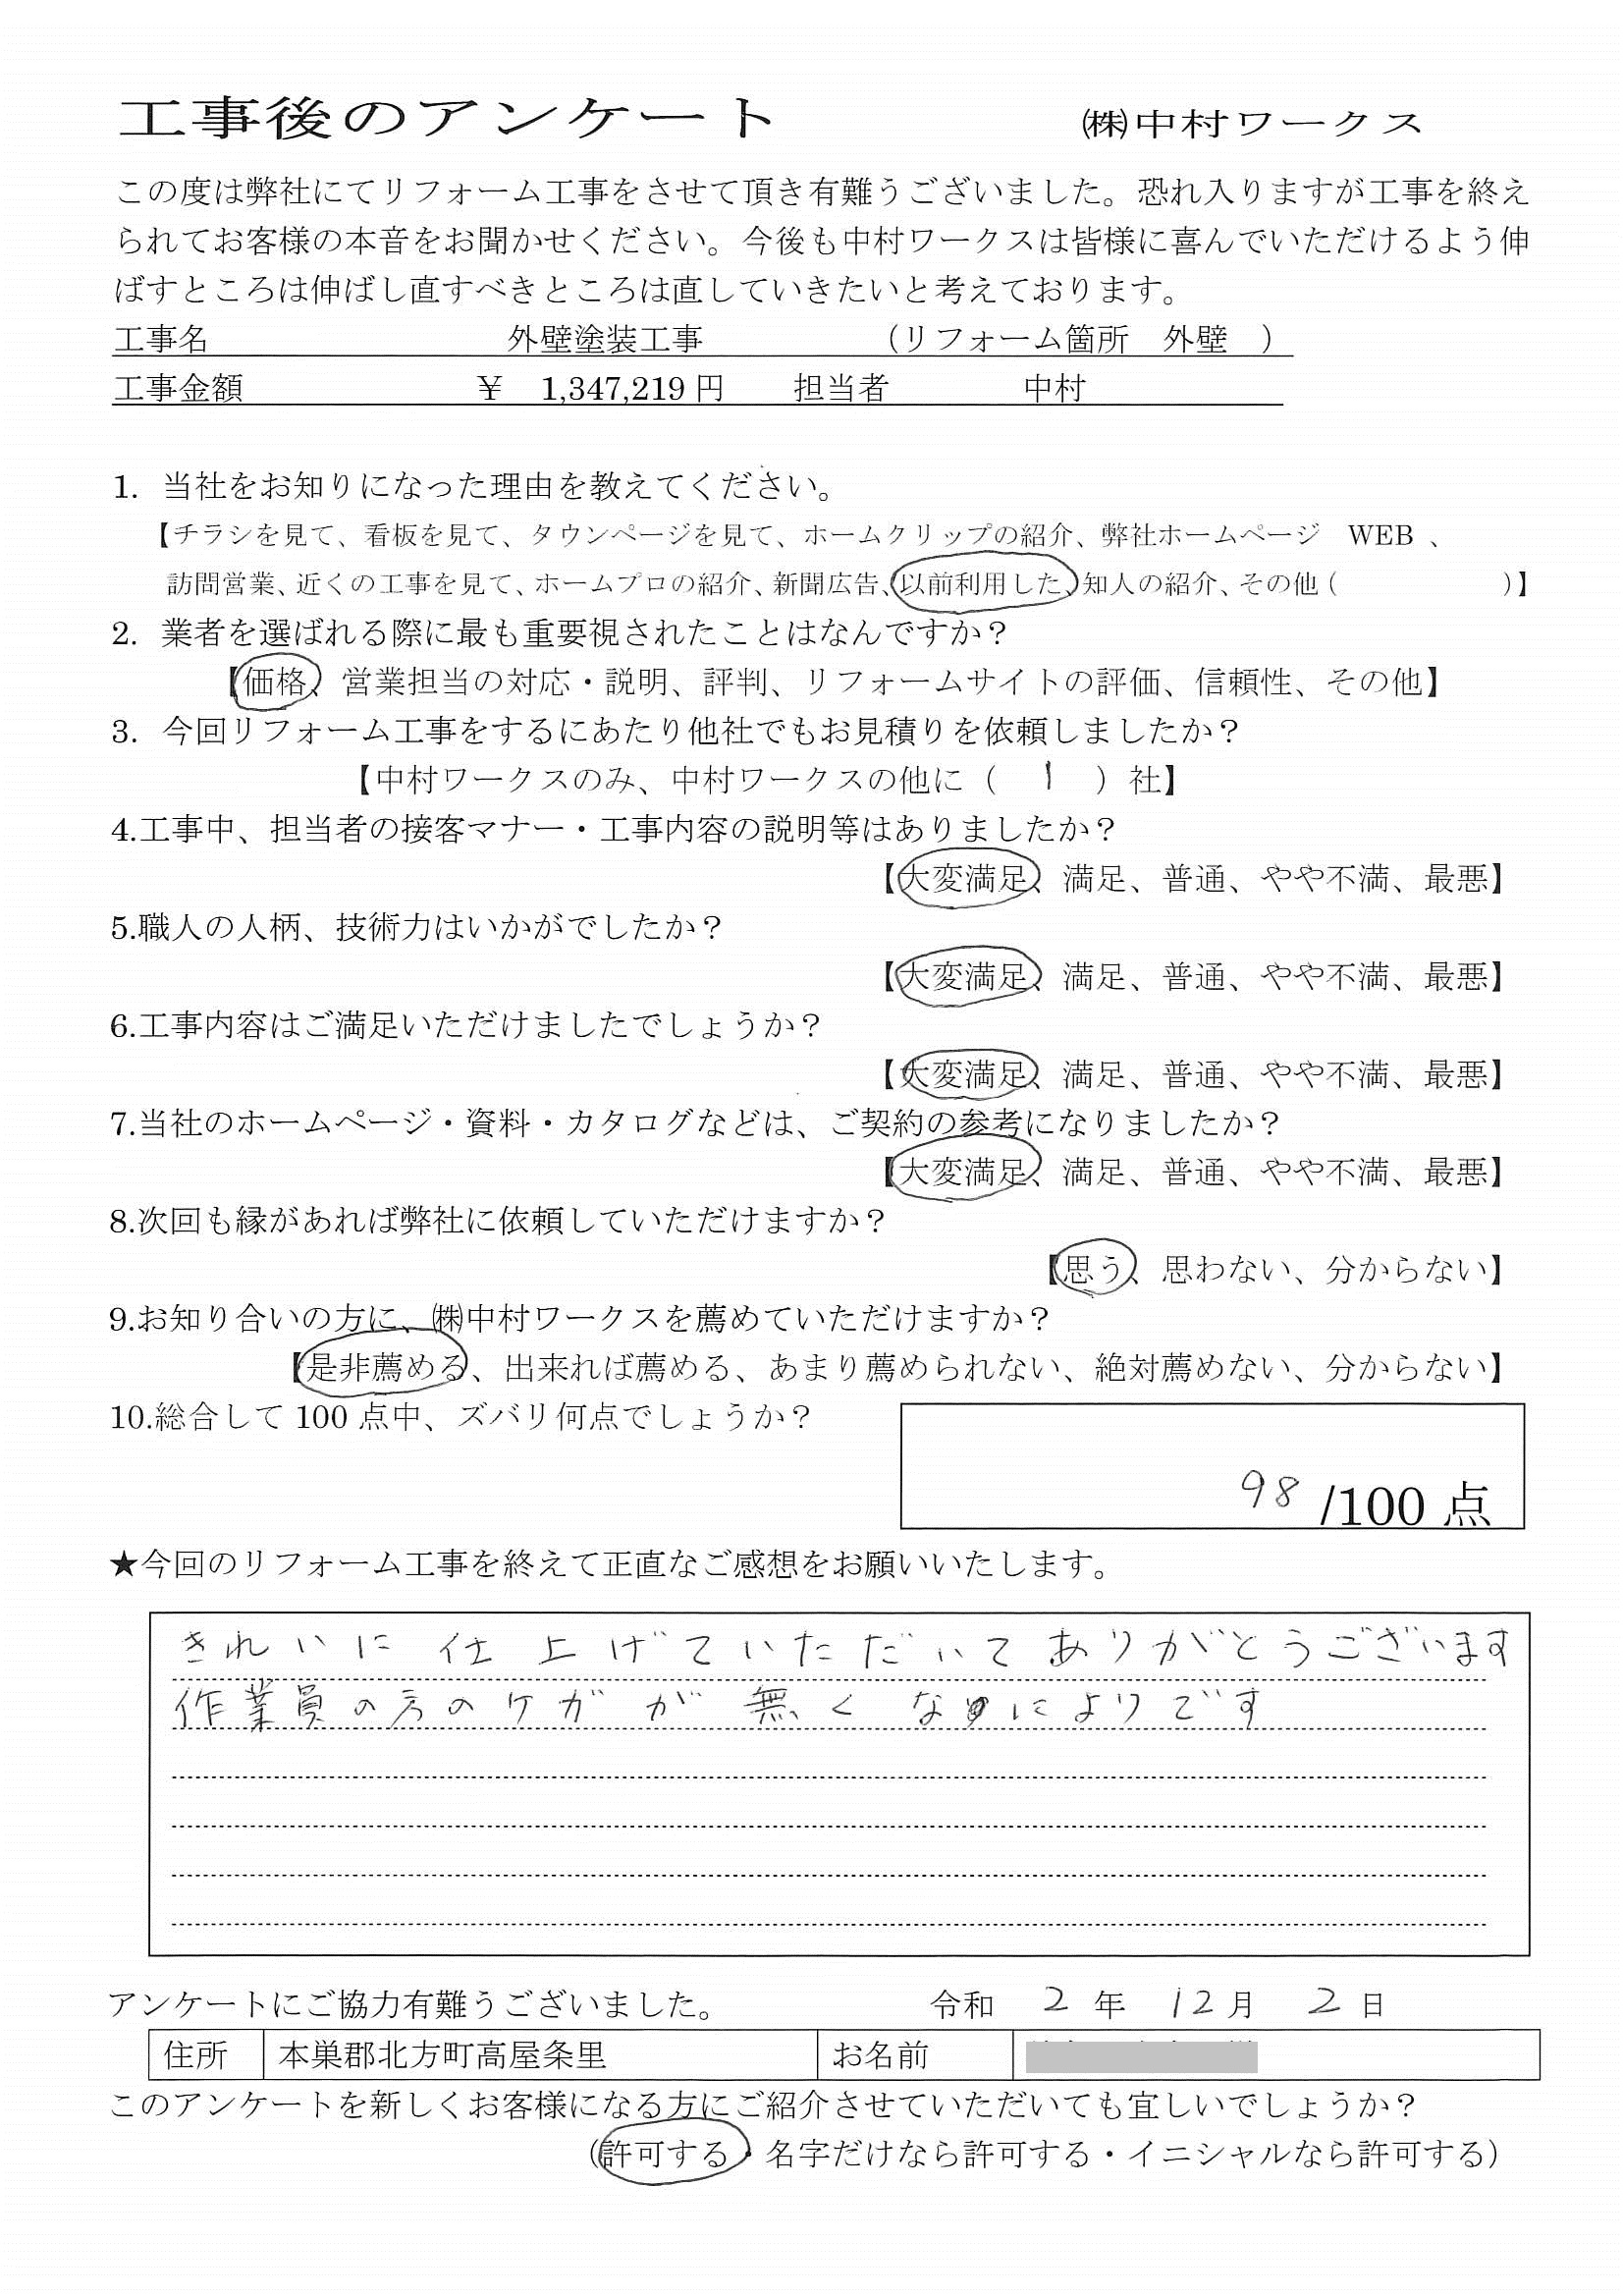 工事後のアンケート ㈱中村ワークス
この度は弊社にてリフォーム工事をさせて頂き有難うございました。恐れ入りますが工事を終え
られてお客様の本音をお聞かせください。今後も中村ワークスは皆様に喜んでいただけるよう伸
ばすところは伸ばし直すべきところは直していきたいと考えております。
工事名 外壁塗装工事 （リフォーム箇所 外壁 ）
工事金額 ￥ 1,347,219 円 担当者 中村
1. 当社をお知りになった理由を教えてください。
【チラシを見て、看板を見て、タウンページを見て、ホームクリップの紹介、弊社ホームページ WEB 、
訪問営業、近くの工事を見て、ホームプロの紹介、新聞広告、以前利用した、知人の紹介、その他（ ）】
2. 業者を選ばれる際に最も重要視されたことはなんですか？
【価格、営業担当の対応・説明、評判、リフォームサイトの評価、信頼性、その他】
3. 今回リフォーム工事をするにあたり他社でもお見積りを依頼しましたか？
【中村ワークスのみ、中村ワークスの他に（ 1 ）社】
4.工事中、担当者の接客マナー・工事内容の説明等はありましたか？
【大変満足、満足、普通、やや不満、最悪】
5.職人の人柄、技術力はいかがでしたか？
【大変満足、満足、普通、やや不満、最悪】
6.工事内容はご満足いただけましたでしょうか？
【大変満足、満足、普通、やや不満、最悪】
7.当社のホームページ・資料・カタログなどは、ご契約の参考になりましたか？
【大変満足、満足、普通、やや不満、最悪】
8.次回も縁があれば弊社に依頼していただけますか？
【思う、思わない、分からない】
9.お知り合いの方に、㈱中村ワークスを薦めていただけますか？
【是非薦める、出来れば薦める、あまり薦められない、絶対薦めない、分からない】
10.総合して 100 点中、ズバリ何点でしょうか？
98 /100 点
★今回のリフォーム工事を終えて正直なご感想をお願いいたします。
きれいに仕上げていただいてありがとうございます
作業員の方のケガが無くなによりです
アンケートにご協力有難うございました。 令和 2 年 12 月 2 日
住所 本巣郡北方町高屋条里 お名前
このアンケートを新しくお客様になる方にご紹介させていただいても宜しいでしょうか？
（許可する・名字だけなら許可する・イニシャルなら許可する）